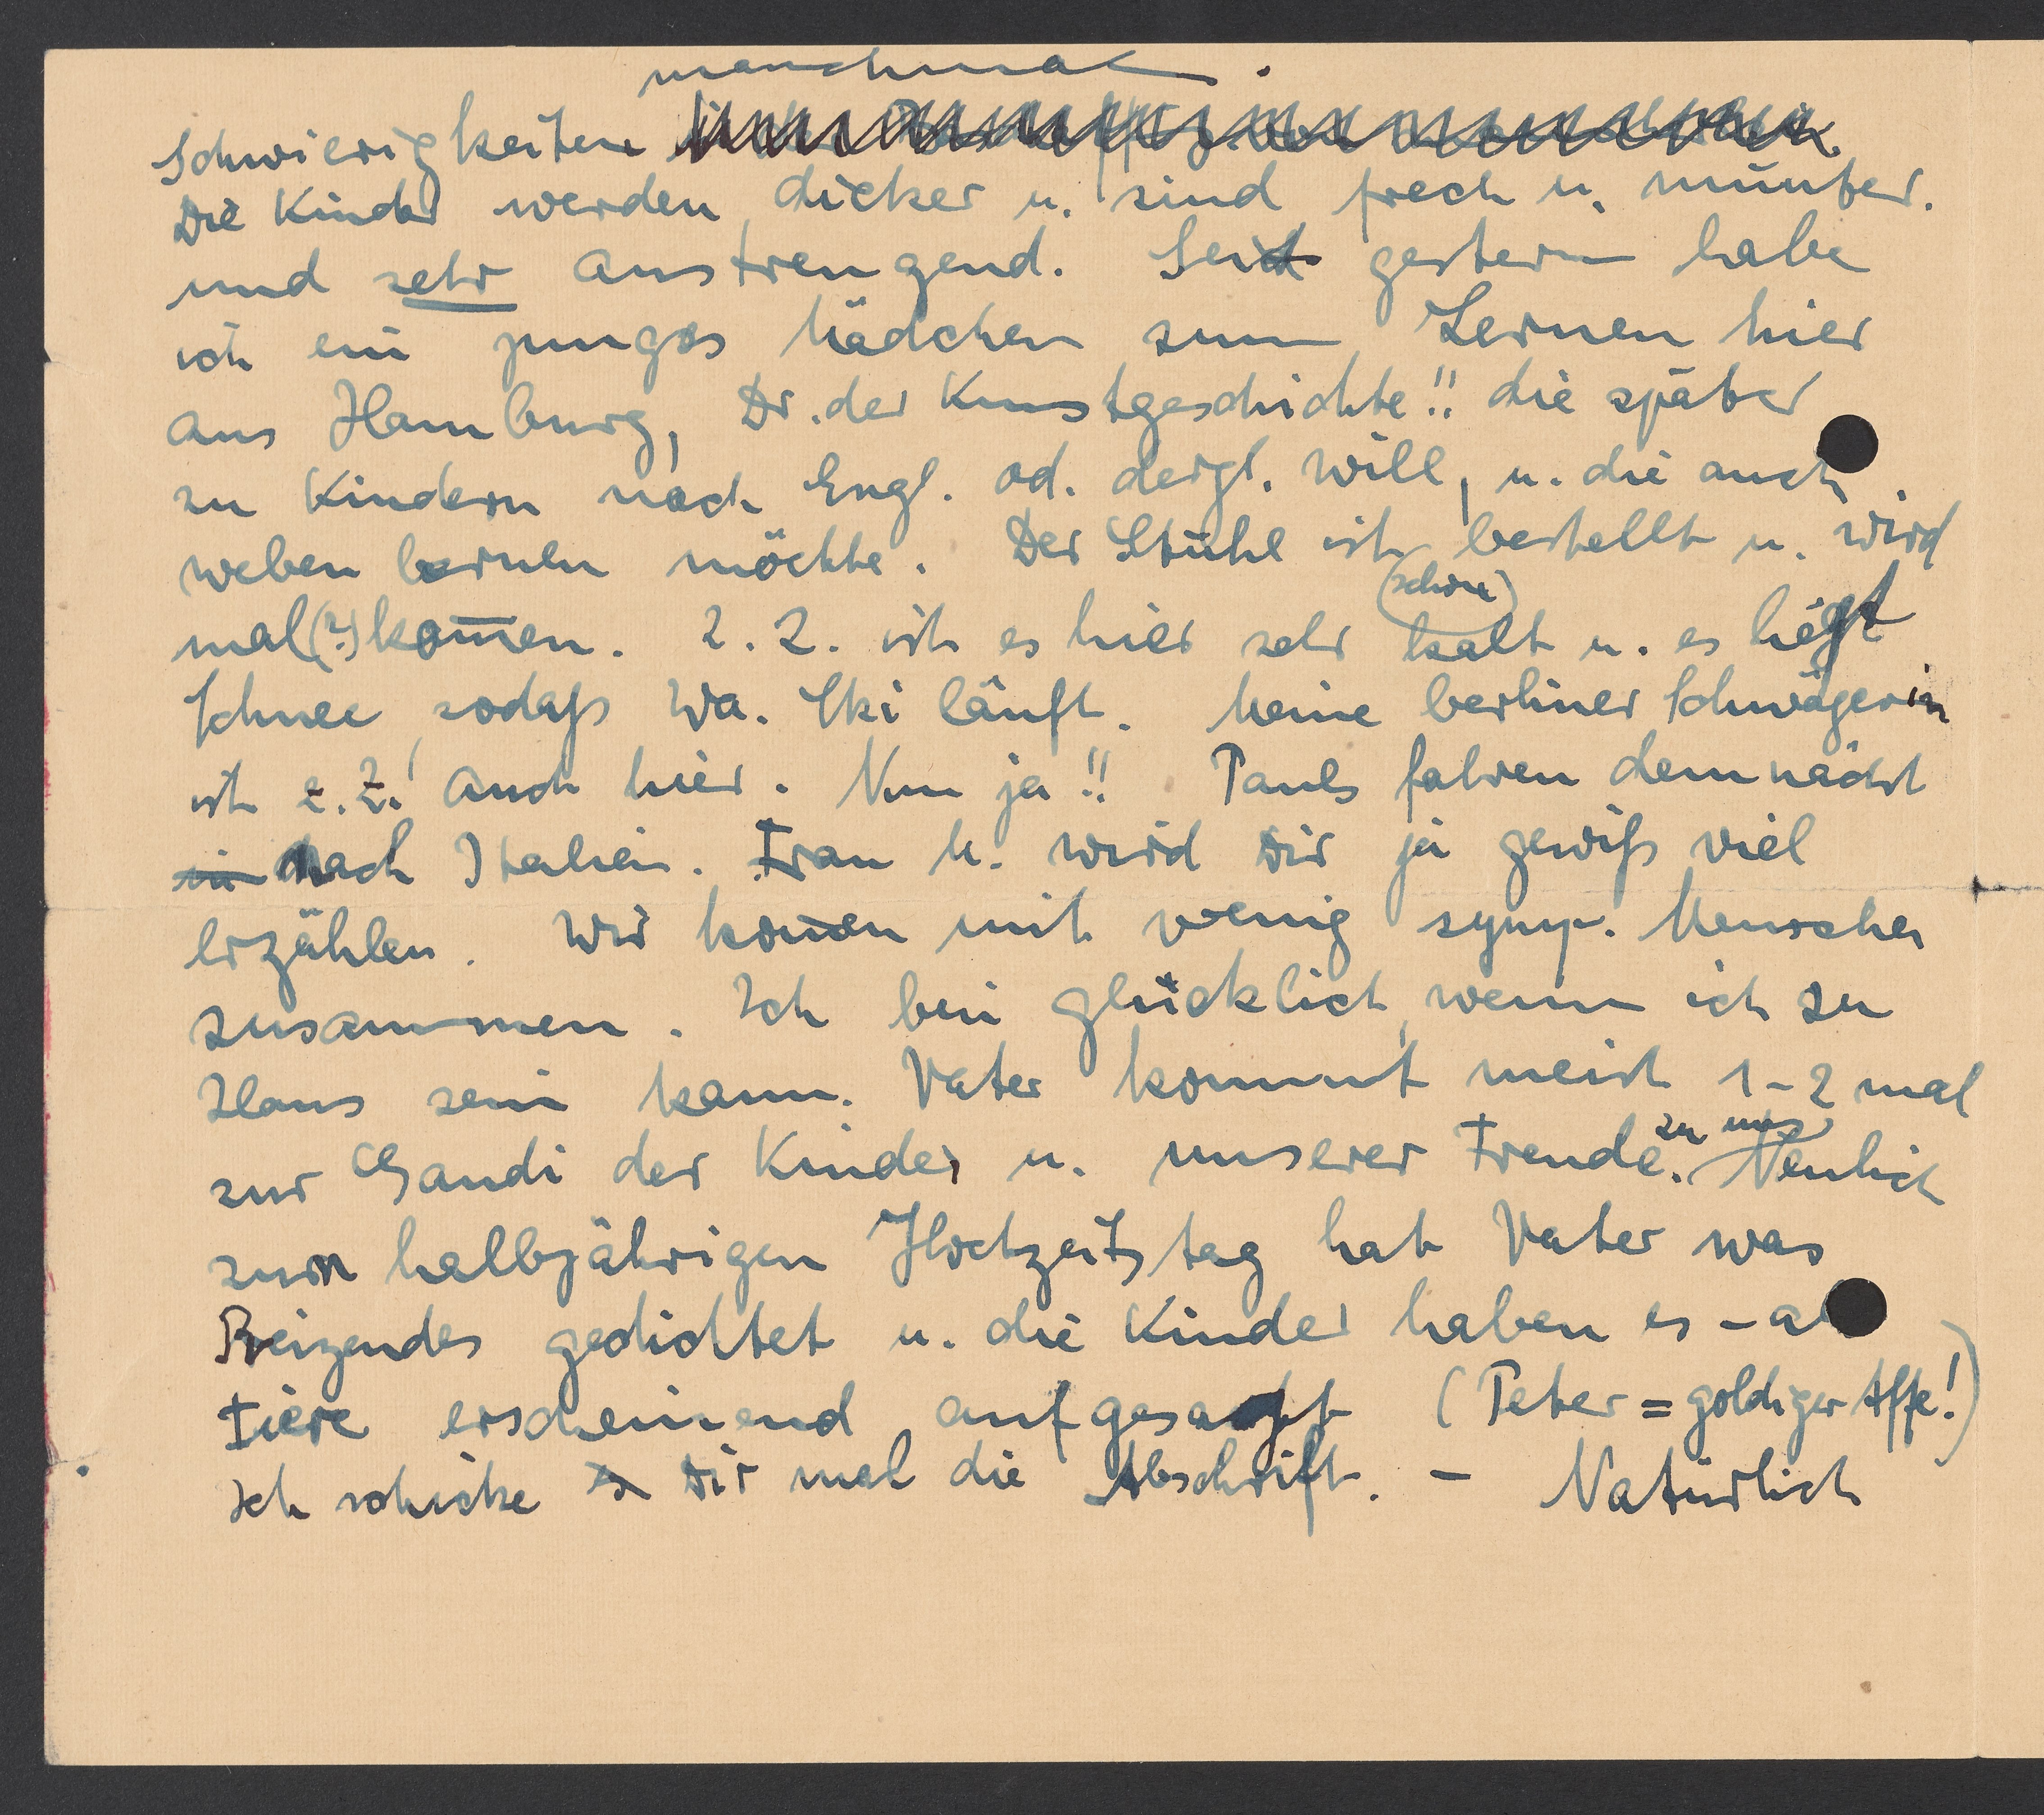 manchmal.
Schwierigkeiten
Die Kinder werden dicker u. sind frech u. munter.
und sehr anstrengend. Seit gestern habe
ich ein junges Mädchen zum Lernen hier
aus Hamburg, Dr. der Kunstgeschichte!! die später
zu Kindern nach Engl. od. dergl. will, u. die auch
weben lernen möchte. Der Stuhl ist bestellt u. wird
(schon)
mal(?) kom̄en. z. Z. ist es hier sehr kalt u. es liegt
Schnee, sodaß Wa. Ski läuft. Meine berliner Schwägerin
ist z. Z.! auch hier. Nun ja!! Pauls fahren demnächst
in nach Italien. Frau M. wird Dir ja gewiß viel
erzählen. Wir kom̄en mit wenig symp. Menschen
zusammen. Ich bin glücklich, wenn ich zu
Haus sein kann. Vater kommt meist 1-2 mal
zu uns
zur Gaudi der Kinder u. unserer Freude. Neulich
zum halbjährigen Hochzeitstag hat Vater was
Reizendes gedichtet u. die Kinder haben es - a
Tiere erscheinend aufgesagt (Peter = goldiger Affe!)
Ich schicke Dir mal die Abschrift. - Natürlich